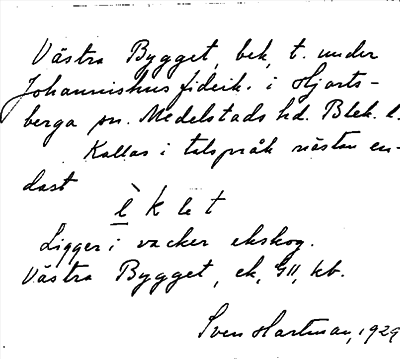 Västra Bygget, bek, t. under
Johannishus fideik. i Hjorts-
berga sn. Medelstads hd. Blek. l.
Kallas i talspråk nästan en-
dast
è k le t
Ligger i vacker ekskog.
Västra Bygget, ek, GII, kb.
Sven Hartman, 1929